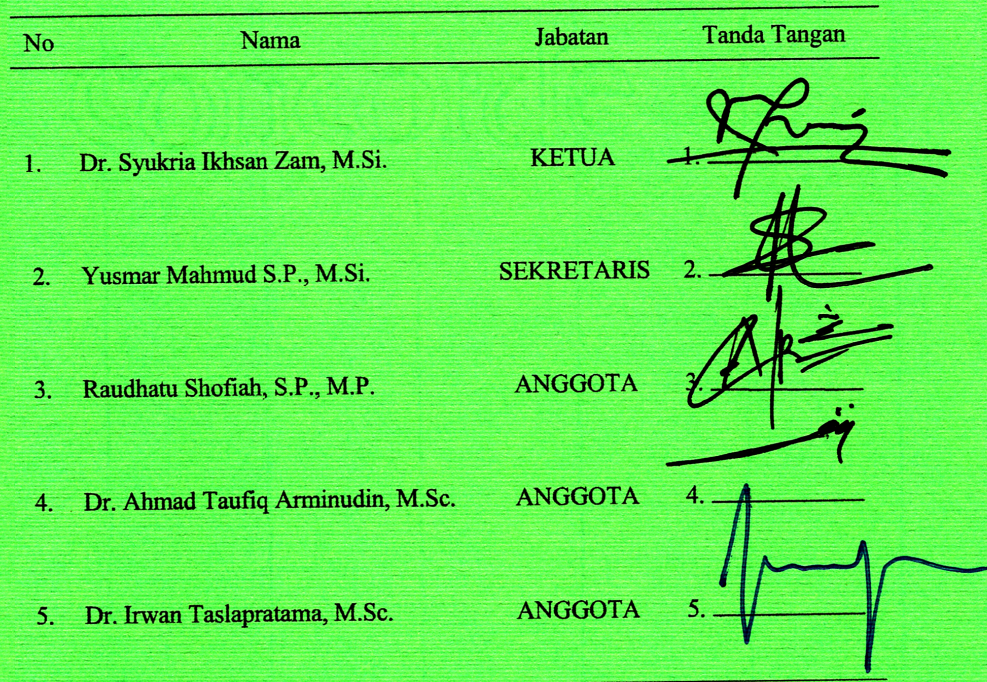 No Nama Jabatan Tanda Tangan
1. Dr. Syukria Ikhsan Zam, M.Si. KETUA 1.
2. Yusmar Mahmud S.P., M.Si. SEKRETARIS 2.
3. Raudhatu Shofiah, S.P., M.P. ANGGOTA 3.
4. Dr. Ahmad Taufiq Arminudin, M.Sc. ANGGOTA 4.
5. Dr. Irwan Taslapratama, M.Sc. ANGGOTA 5.